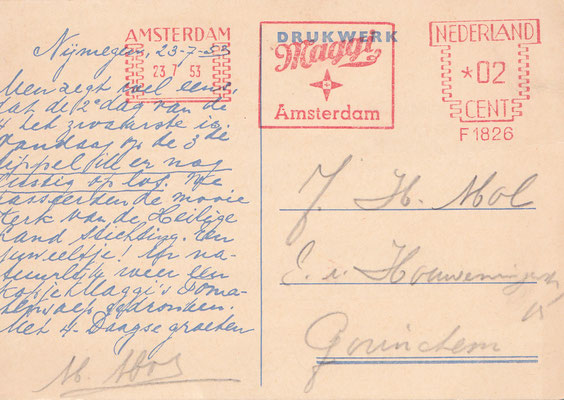 AMSTERDAM
23 7 53
DRUKWERK
Maggi
Amsterdam
NEDERLAND
*02
CENT
F 1826
Nijmegen, 23-7-53
Men zegt wel eens,
dat de 2e dag van de
4 het zwaarste is.
Vandaag op de 3de
tippel ik er nog
lustig op los. We
passeerden de mooie
kerk van de Heilige
Land stichting. Een
juweeltje! En na-
tuurlijk weer een
kopje Maggi's Toma-
tensoep gedronken.
Met 4-Daagse groeten
J. H. Mol
Gorinchem